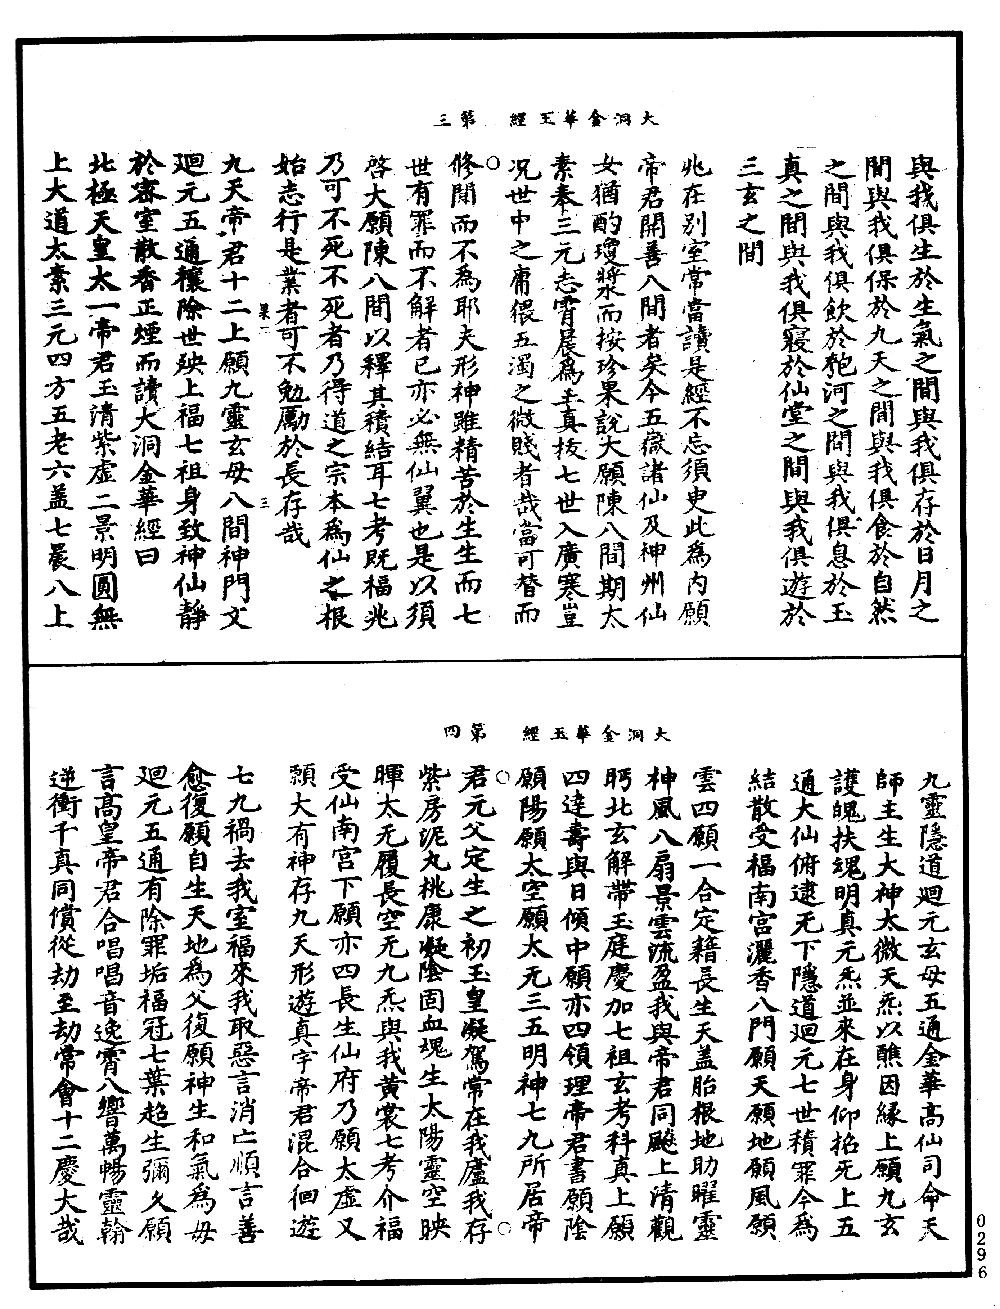 大洞金華玉經　第三
與我俱生於生氣之間與我俱存於日月之
間與我俱保於九天之間與我俱食於自然
之間與我俱飲於匏河之間與我俱息於玉
真之間與我俱寢於仙堂之間與我俱遊於
三玄之間
兆在別室常當讀是經不忘須臾此為內願
帝君開善八間者矣今五嶽諸仙及神州仙
女猶酌瓊漿而按珍果說大願陳八間期太
素奉三元志霄晨為玉真拔七世入廣寒豈
況世中之庸猥五濁之微賤者哉當可替而
修閒而不為耶夫形神雖精苦於生生而七
世有罪而不解者已亦必無仙翼也是以須
啓大願陳八間以釋其積結耳七考既福兆
乃可不死不死者乃得道之宗本為仙之根
始志行是業者可不勉厲於長存哉
九天帝君十二上願九靈玄母八間神門文
廻元五通禳除世殃上福七祖身致神仙靜
於密室散香正煙而讀大洞金華經曰
北極天皇太一帝君玉清紫虛二景明圓無
上大道太素三元四方五老六蓋七晨八上
大洞金華玉經　第四
九靈隱道廻元玄母五通金華高仙司命天
師主生大神太微天炁以醮因緣上願九玄
護魄扶魂明真元炁並來在身仰招无上五
通大仙俯逮无下隱道廻元七世積罪今為
結散受福南宮灑香八門願天願地願風願
雲四願一合定籍長生天蓋胎根地助曜靈
神風八扇景雲流盈我與帝君同飈上清觀
眄北玄解帶玉庭慶加七祖玄考科真上願
四達壽與日傾中願亦四領理帝君書願陰
願陽願太空願太无三五明神七九所居帝
君元父定生之初玉皇凝駕常在我廬我存
紫房泥丸桃康凝陰固血魂生太陽靈空映
暉太无履長空无九炁與我黃裳七考介福
受仙南宮下願亦四長生仙府乃願太虛又
願大有神存九天形遊真宇帝君混合徊遊
七九禍去我室福來我取惡言消亡順言善
愈復願自生天地為父復願神生和氣為母
廻元五通有除罪垢福冠七葉超生彌久願
言高皇帝君合唱唱音逸霄八響萬暢靈翰
逆衝千真同償從劫至劫常會十二慶大哉
0296